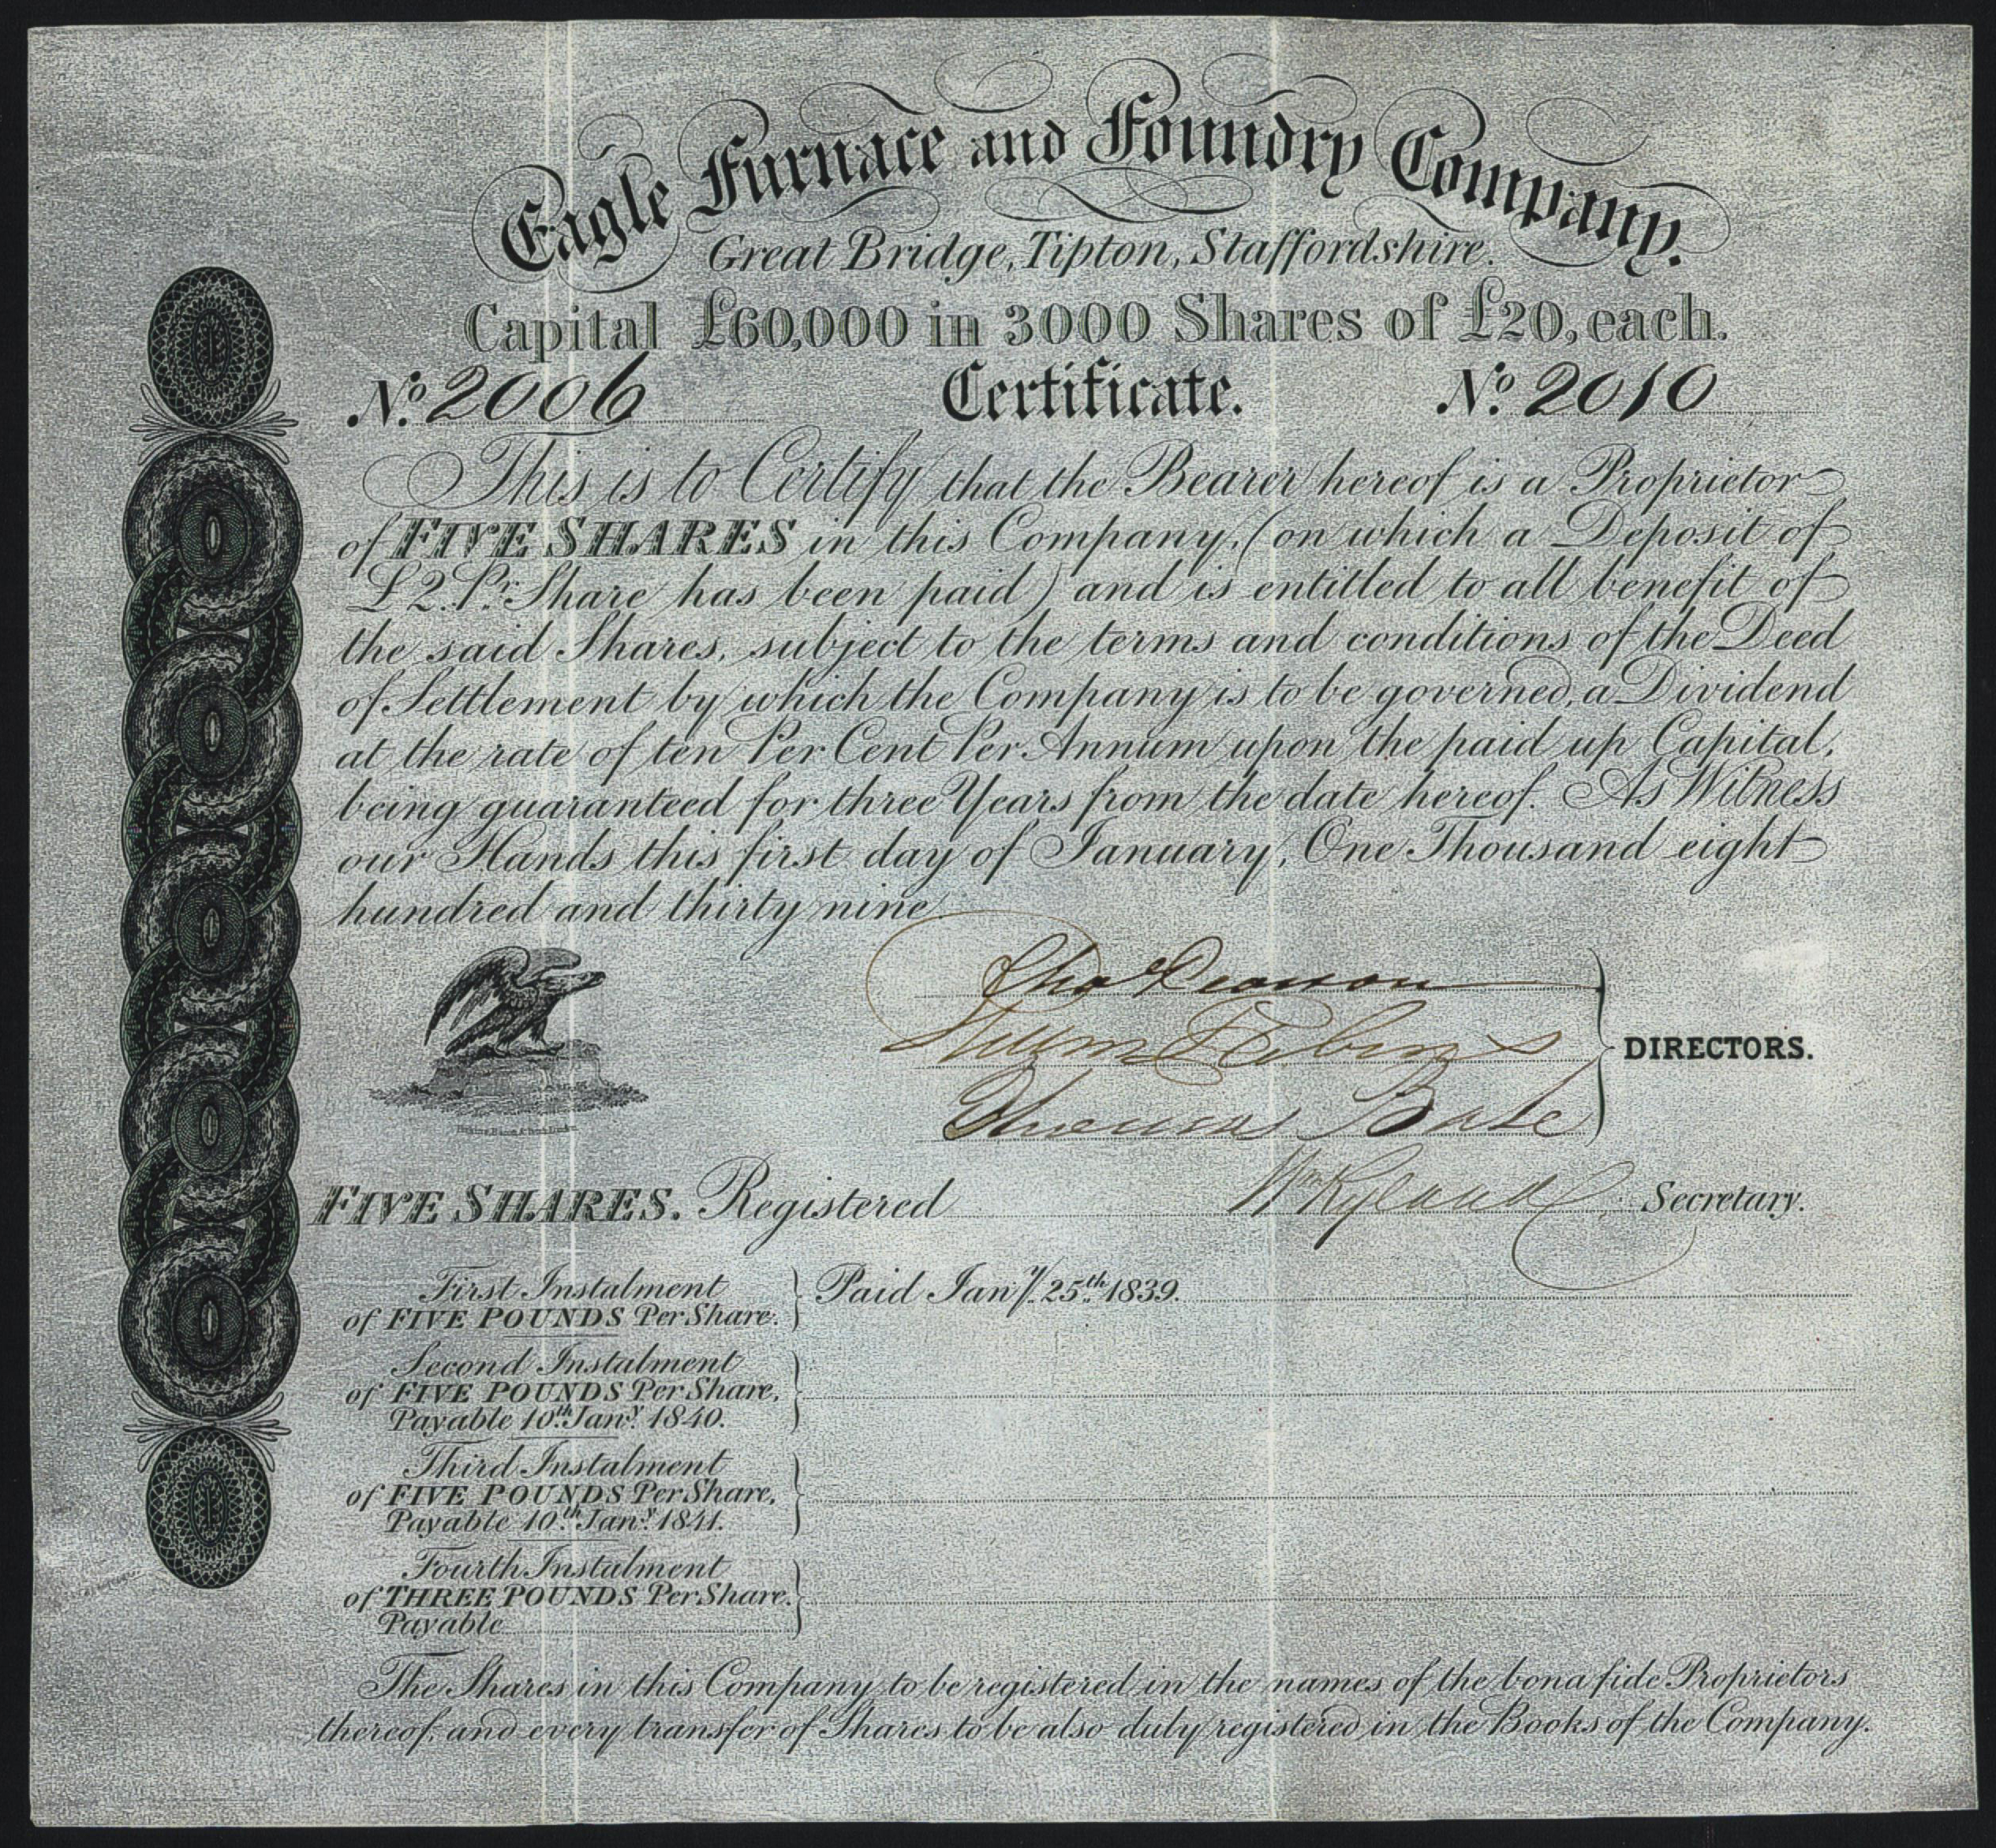 Eagle Furnace and Foundry Company.
Great Bridge, Tipton, Staffordshire.
Capital £60,000 in 3000 Shares of £20, each.
No. 2006 Certificate. No. 2010
This is to Certify that the Bearer hereof is a Proprietor
of FIVE SHARES in this Company, (on which a Deposit of
£2. Pr. Share has been paid) and is entitled to all benefit of
the said Shares, subject to the terms and conditions of the Deed
of Settlement by which the Company is to be governed, a Dividend
at the rate of ten Per Cent Per Annum upon the paid up Capital,
being guaranteed for three Years from the date hereof. As Witness
our Hands this first day of January, One Thousand eight
hundred and thirty nine
Thos
Thomas Bate
DIRECTORS.
FIVE SHARES. Registered Wm Ryland Secretary.
First Instalment
of FIVE POUNDS Per Share. Paid Jany. 25th 1839.
Second Instalment
of FIVE POUNDS Per Share,
Payable 10th Jany. 1840.
Third Instalment
of FIVE POUNDS Per Share,
Payable 10th Jany. 1841.
Fourth Instalment
of THREE POUNDS Per Share.
Payable
The Shares in this Company to be registered in the names of the bona fide Proprietors
thereof, and every transfer of Shares to be also duly registered in the Books of the Company.